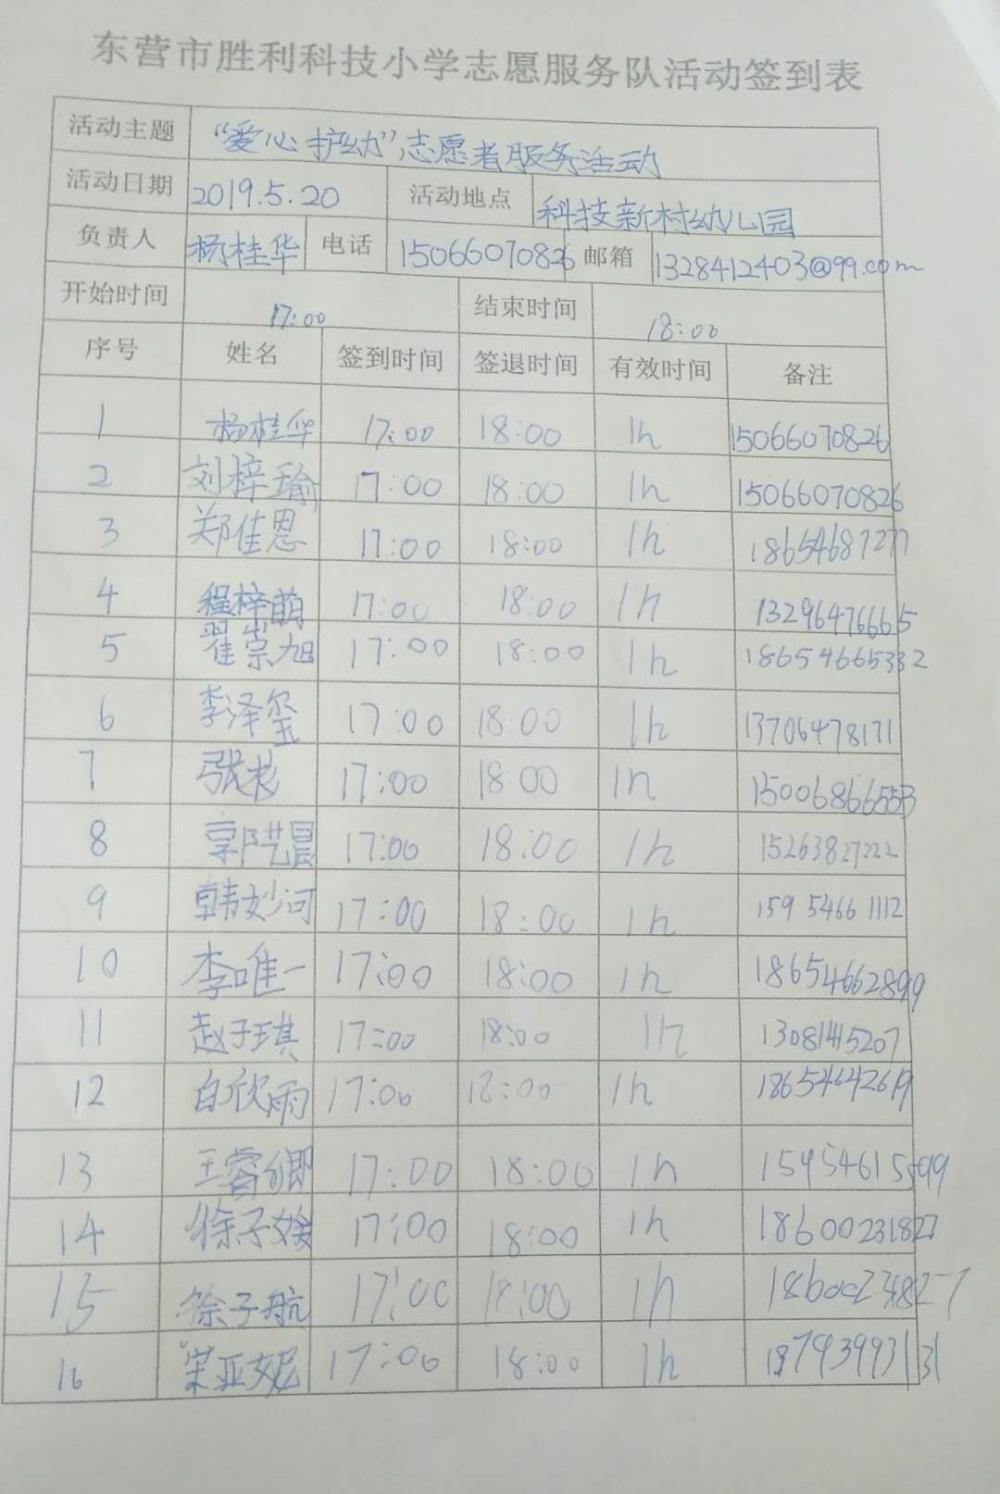 东营市胜利科技小学志愿服务队活动签到表
活动主题 “爱心护幼”志愿者服务活动
活动日期 2019.5.20 活动地点 科技新村幼儿园
负责人 杨桂华 电话 15066070826 邮箱 1328412403@99.com
开始时间 17:00 结束时间 18:00
序号 姓名 签到时间 签退时间 有效时间 备注
1 杨桂华 17:00 18:00 1h 15066070826
2 刘梓瑜 17:00 18:00 1h 15066070826
3 郑佳恩 17:00 18:00 1h 18654687277
4 程梓萌 17:00 18:00 1h 13296476665
5 翟崇旭 17:00 18:00 1h 18654665332
6 李泽玺 17:00 18:00 1h 13706478171
7 17:00 18:00 1h 15006866553
8 17:00 18:00 1h 15263827222
9 韩妙可 17:00 18:00 1h 159 5466 1112
10 李唯一 17:00 18:00 1h 18654662899
11 赵子琪 17:00 18:00 1h 1308145207
12 白欣雨 17:00 18:00 1h 18654642619
13 王睿卿 17:00 18:00 1h 15954615599
14 徐子媛 17:00 18:00 1h 18600231827
15 徐子航 17:00 18:00 1h
16 宋亚妮 17:00 18:00 1h